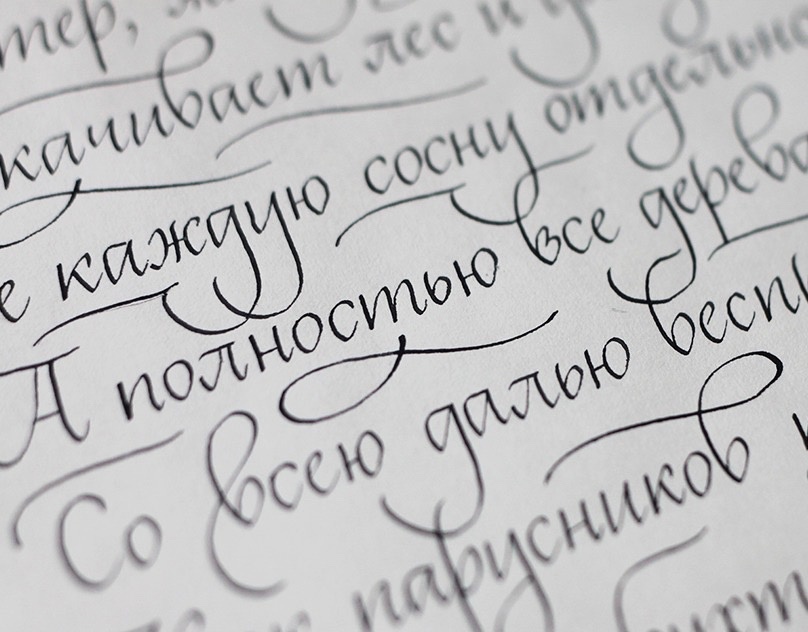 тер, ж
качивает лес и
е каждую сосну отдельно
А полностью все дерева
Со всею далью беспр
парусников
бухт